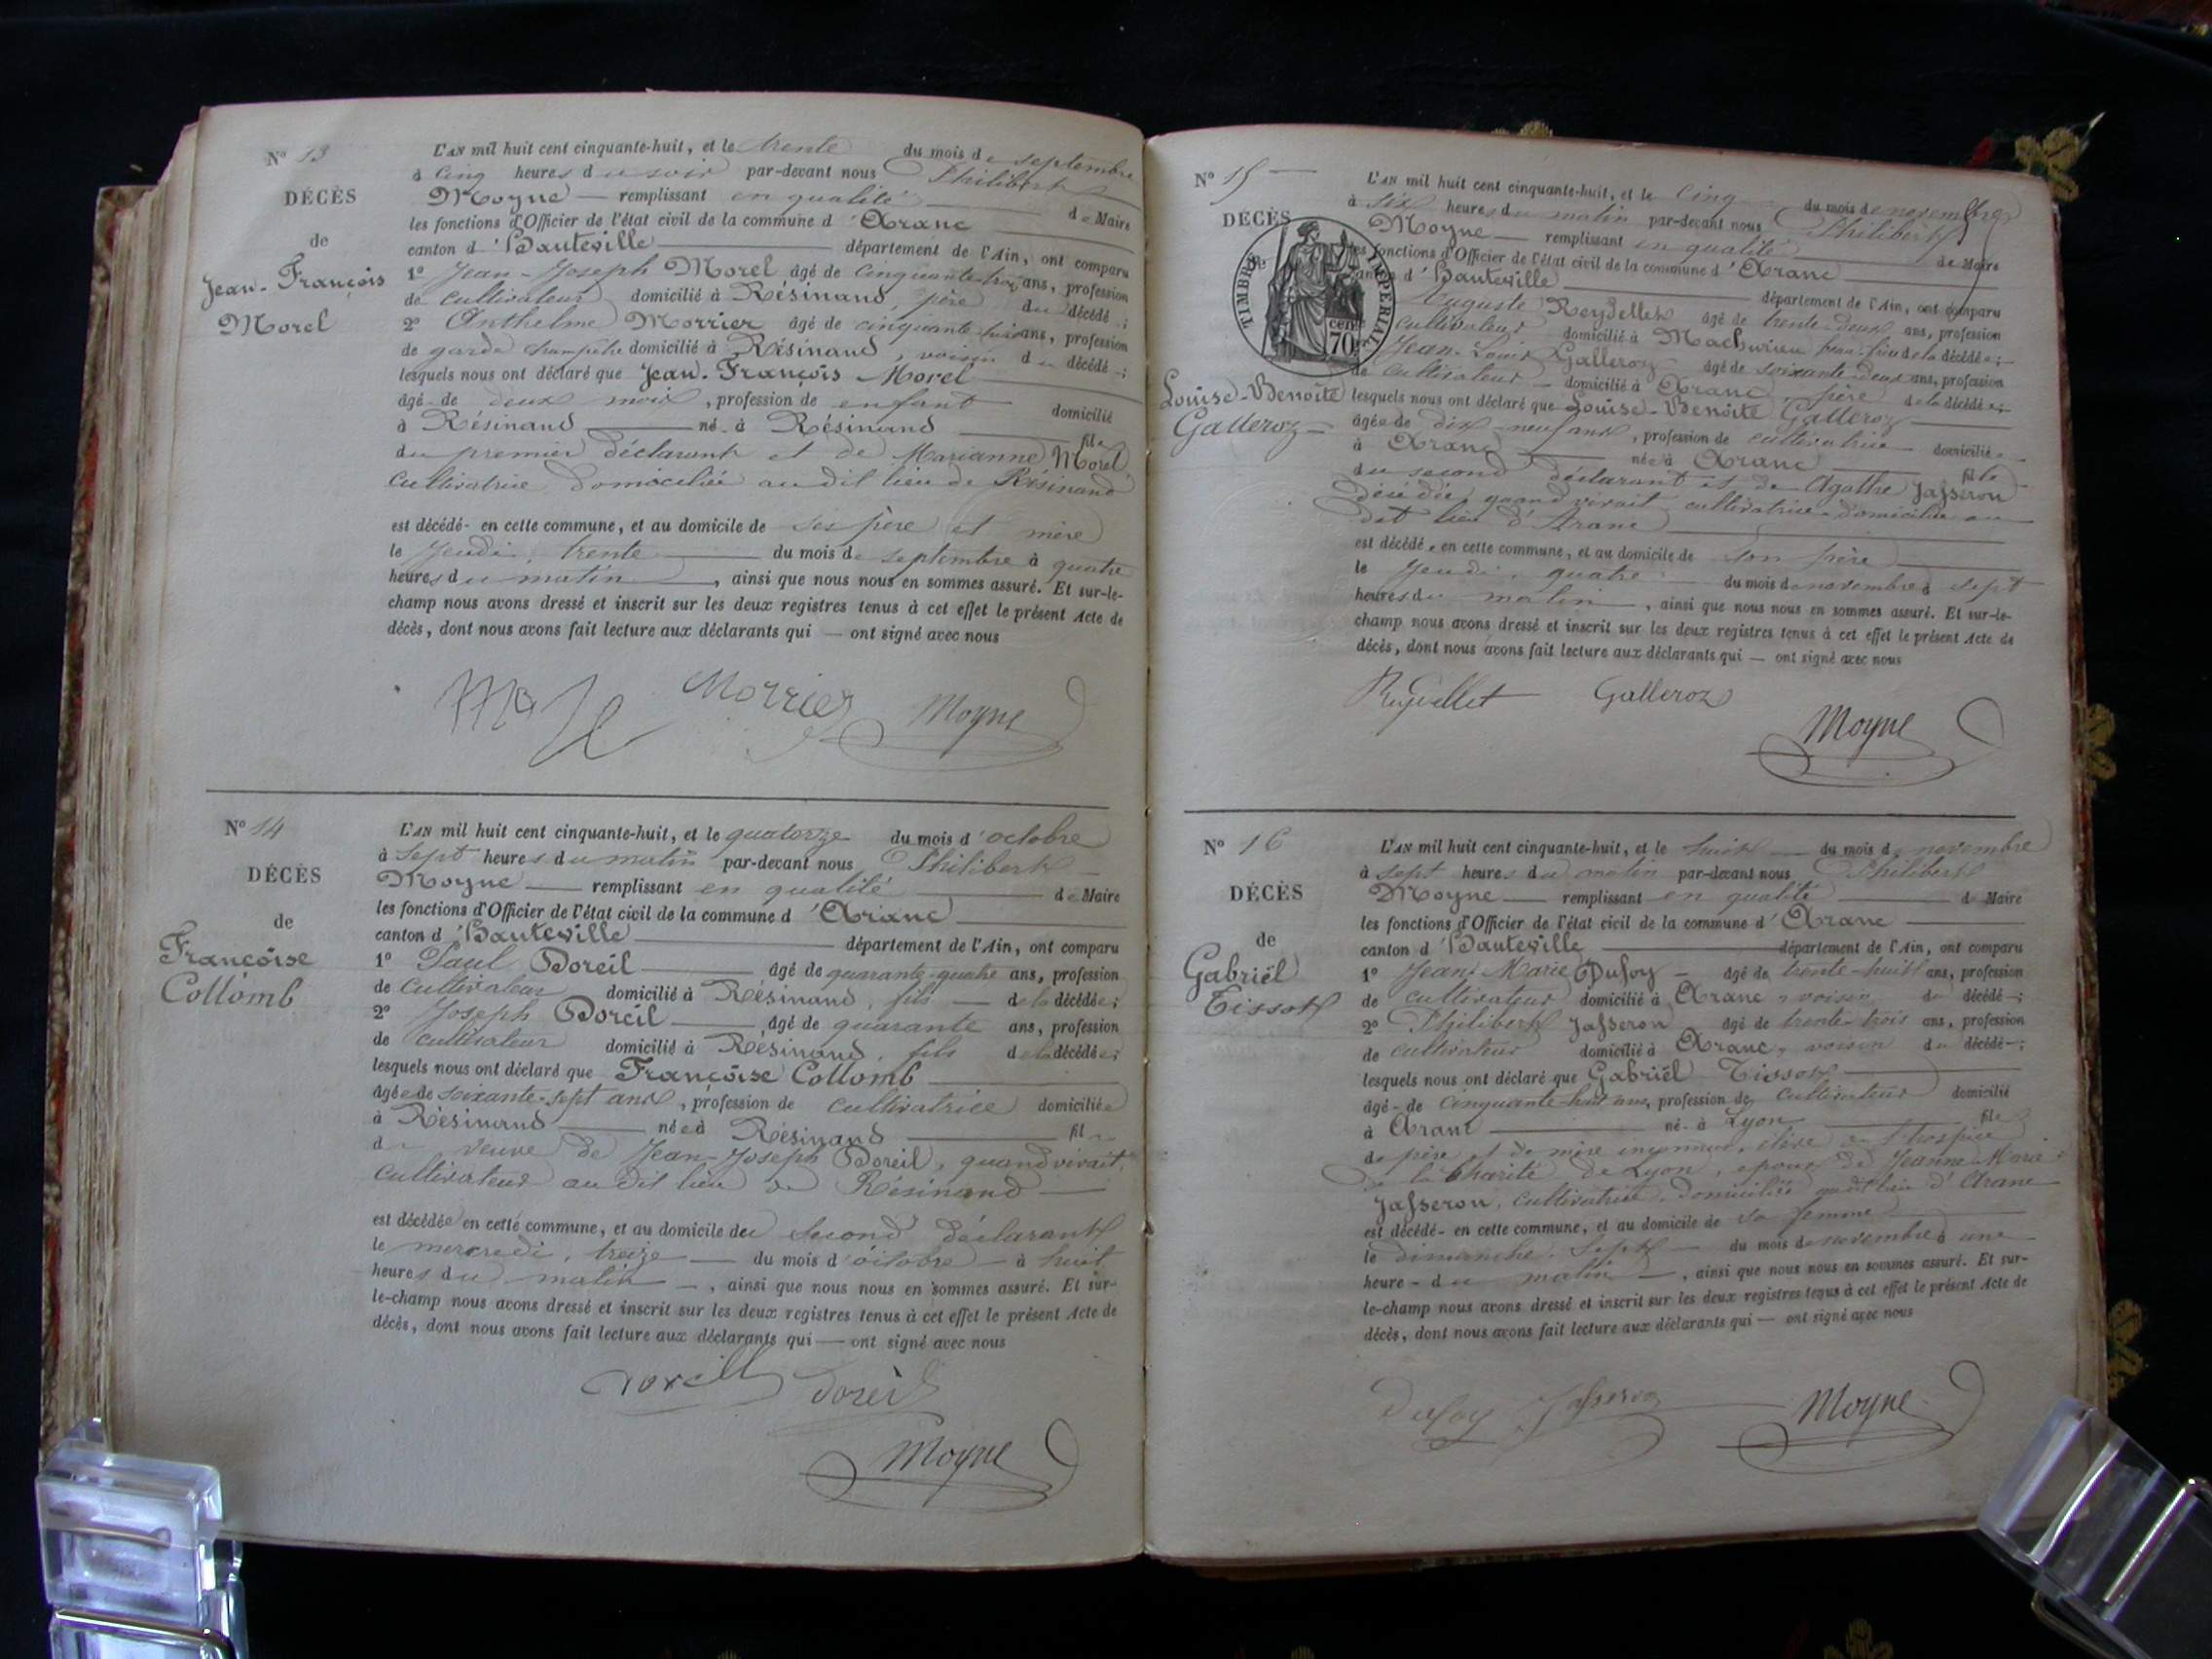 N° 13
DÉCÈS
de
Jean-François
Morel
L'AN mil huit cent cinquante-huit, et le trente du mois de septembre
à cinq heures du soir par-devant nous Philibert
Moyne — remplissant en qualité de Maire
les fonctions d'Officier de l'état civil de la commune d'Aranc
canton d'Hauteville département de l'Ain, ont comparu
1° Jean-Joseph Morel âgé de cinquante-trois ans, profession
de cultivateur domicilié à Résinand, père du décédé ;
2° Anthelme Morrier âgé de cinquante-huit ans, profession
de garde champêtre domicilié à Résinand, voisin du décédé ;
lesquels nous ont déclaré que Jean-François Morel
âgé de deux mois, profession de enfant domicilié
à Résinand né à Résinand fils
du premier déclarant et de Marianne Morel
cultivatrice domiciliée au dit lieu de Résinand
est décédé en cette commune, et au domicile de ses père et mère
le jeudi, trente du mois de septembre à quatre
heures du matin, ainsi que nous nous en sommes assuré. Et sur-le-
champ nous avons dressé et inscrit sur les deux registres tenus à cet effet le présent Acte de
décès, dont nous avons fait lecture aux déclarants qui — ont signé avec nous
Morrier Moyne
N° 14
DÉCÈS
de
Françoise
Collomb
L'AN mil huit cent cinquante-huit, et le quatorze du mois d'octobre
à sept heures du matin par-devant nous Philibert
Moyne — remplissant en qualité de Maire
les fonctions d'Officier de l'état civil de la commune d'Aranc
canton d'Hauteville département de l'Ain, ont comparu
1° Paul Doreil âgé de quarante-quatre ans, profession
de cultivateur domicilié à Résinand, fils — de la décédée ;
2° Joseph Doreil âgé de quarante ans, profession
de cultivateur domicilié à Résinand, fils de la décédée ;
lesquels nous ont déclaré que Françoise Collomb
âgée de soixante-sept ans, profession de cultivatrice domiciliée
à Résinand née à Résinand fil
d veuve de Jean-Joseph Doreil, quand vivait,
cultivateur au dit lieu de Résinand —
est décédée en cette commune, et au domicile du second déclarant
le mercredi, treize — du mois d'octobre — à huit
heures du matin —, ainsi que nous nous en sommes assuré. Et sur-
le-champ nous avons dressé et inscrit sur les deux registres tenus à cet effet le présent Acte de
décès, dont nous avons fait lecture aux déclarants qui — ont signé avec nous
Doreil
Moyne
N° 15
DÉCÈS
de
TIMBRE IMPÉRIAL
cent.
70
Louise-Benoîte
Galleroz
L'AN mil huit cent cinquante-huit, et le cinq du mois de novembre
à six heures du matin par-devant nous Philibert
Moyne — remplissant en qualité de Maire
les fonctions d'Officier de l'état civil de la commune d'Aranc
canton d'Hauteville département de l'Ain, ont comparu
Auguste Reydellet âgé de trente-deux ans, profession
cultivateur domicilié à Machurieu beau-frère de la décédée ;
Jean-Louis Galleroz âgé de soixante-deux ans, profession
de cultivateur — domicilié à Aranc, père de la décédée ;
lesquels nous ont déclaré que Louise-Benoîte Galleroz
âgée de dix-neuf ans, profession de cultivatrice domiciliée
à Aranc née à Aranc fille
du second déclarant et de Agathe Jasseron
décédée, quand vivait cultivatrice domiciliée au
dit lieu d'Aranc
est décédée en cette commune, et au domicile de son père
le jeudi, quatre du mois de novembre à sept
heures du matin, ainsi que nous nous en sommes assuré. Et sur-le-
champ nous avons dressé et inscrit sur les deux registres tenus à cet effet le présent Acte de
décès, dont nous avons fait lecture aux déclarants qui — ont signé avec nous
Reydellet Galleroz
Moyne
N° 16
DÉCÈS
de
Gabriël
Tissot
L'AN mil huit cent cinquante-huit, et le huit — du mois de novembre
à sept heures du matin par-devant nous Philibert
Moyne — remplissant en qualité de Maire
les fonctions d'Officier de l'état civil de la commune d'Aranc
canton d'Hauteville département de l'Ain, ont comparu
1° Jean-Marie Dufoy — âgé de trente-huit ans, profession
de cultivateur domicilié à Aranc, voisin du décédé ;
2° Philibert Jasseron âgé de trente-trois ans, profession
de cultivateur domicilié à Aranc, voisin du décédé ;
lesquels nous ont déclaré que Gabriël Tissot
âgé de cinquante-huit ans, profession de cultivateur domicilié
à Aranc né à Lyon fils
de père et de mère inconnus, élève de l'hospice
de la Charité de Lyon, époux de Jeanne-Marie
Jasseron, cultivatrice domiciliée au dit lieu d'Aranc
est décédé en cette commune, et au domicile de sa femme
le dimanche, sept — du mois de novembre à une
heure du matin —, ainsi que nous nous en sommes assuré. Et sur-
le-champ nous avons dressé et inscrit sur les deux registres tenus à cet effet le présent Acte de
décès, dont nous avons fait lecture aux déclarants qui — ont signé avec nous
Dufoy Jasseron Moyne